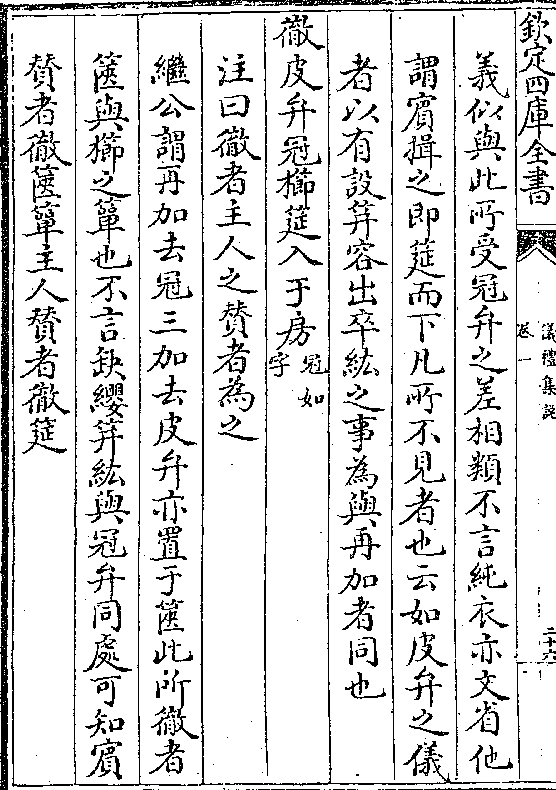 欽定四庫全書
儀禮集說
卷一
二十六
義似與此所受冠弁之差相類不言純衣亦文省他
謂賓揖之即筵而下凡所不見者也云如皮弁之儀
者以有設筓容出卒紘之事為與再加者同也
徹皮弁冠櫛筵入于房冠如字
注曰徹者主人之贊者為之
繼公謂再加去冠三加去皮弁亦置于篋此所徹者
篋與櫛之簞也不言缺纓筓紘與冠弁同處可知賓
贊者徹篋簞主人贊者徹筵